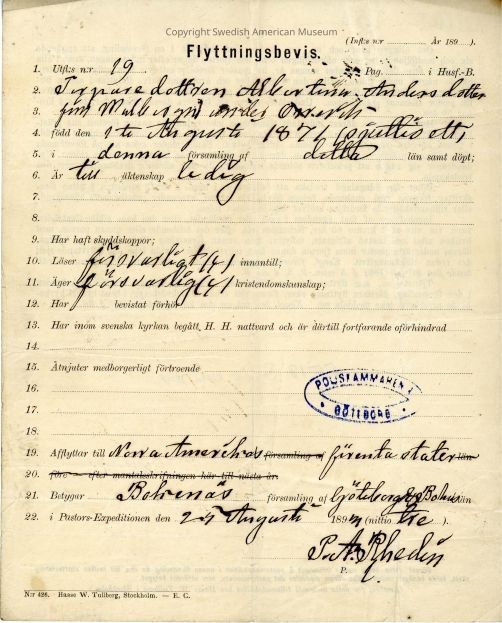 Copyright Swedish American Museum
(Infl:s n:r År 189 ).
Flyttningsbevis.
1. Utfl:s n:r 19 Pag. i Husf.-B.
2. Torpare dottren Albertina Andersdotter
3. från under
4. född den 1 te Augusti 1871 (sjuttio ett)
5. i denna församling af detta län samt döpt;
6. Är till äktenskap ledig
7.
8.
9. Har haft skyddskoppor;
10. Läser försvarligt innantill;
11. Äger försvarlig kristendomskunskap;
12. Har bevistat förhör
13. Har inom svenska kyrkan begått H. H. nattvard och är därtill fortfarande oförhindrad
14.
15. Åtnjuter medborgerligt förtroende
16.
POLISKAMMAREN I
GÖTEBORG
17.
18.
19. Afflyttar till Norra Amerikas församling af förenta stater län
20. före — efter mantalsskrifningen här till nästa år.
21. Betygar Bokenäs församling af Göteborgs & Bohus län
22. i Pastors-Expeditionen den 25 Augusti 1893 (nittio tre)
Rhedin
P.
N:r 426. Hasse W. Tullberg, Stockholm. — E. C.